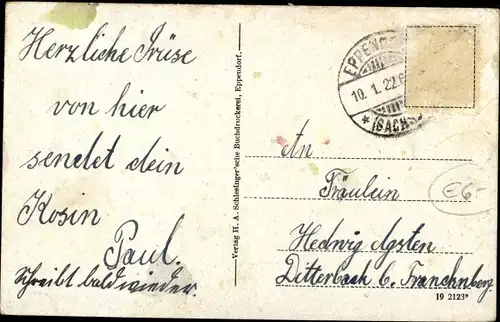 Herzliche Grüse
von hier
sendet dein
Kosin
Paul.
Schreibt bald wieder.
Verlag H. A. Schlesinger'sche Buchdruckerei, Eppendorf.
EPPENDO
10.1.22.6
* (SACHS
An
Fräulein
Hedwig Agsten
Ditterbach b. Franchnberg
£6-
19 2123*